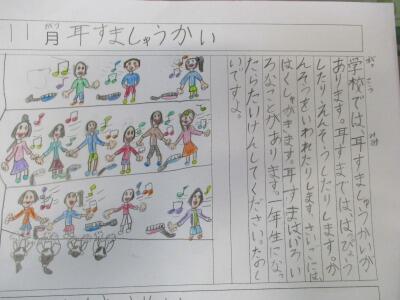 11月耳すましゅうかい
学校では、耳すましゅうかいが
あります。耳すまでは、はっぴょう
したり、えんそうしたりします。か
んそうをいわれたりします。さいごには、
はくしゅがきます。耳すまはいろい
ろなことがあります。一年生になっ
たらたいけんしてください。たのし
いですよ。